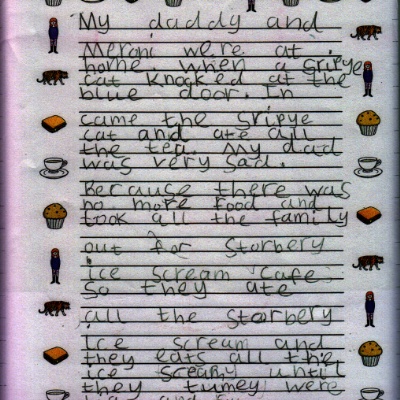 My daddy and
were at
home. when a Gripye
cat knocked at the
blue door. In
came the Sripye
cat and ate all
the tea. My dad
was very sad.
Because there was
no more food and
took all the family
out for Storbery
ice scream Cafe
So they ate
all the Storbery
ice scream and
they eats all the
ice scream until
they tumey were